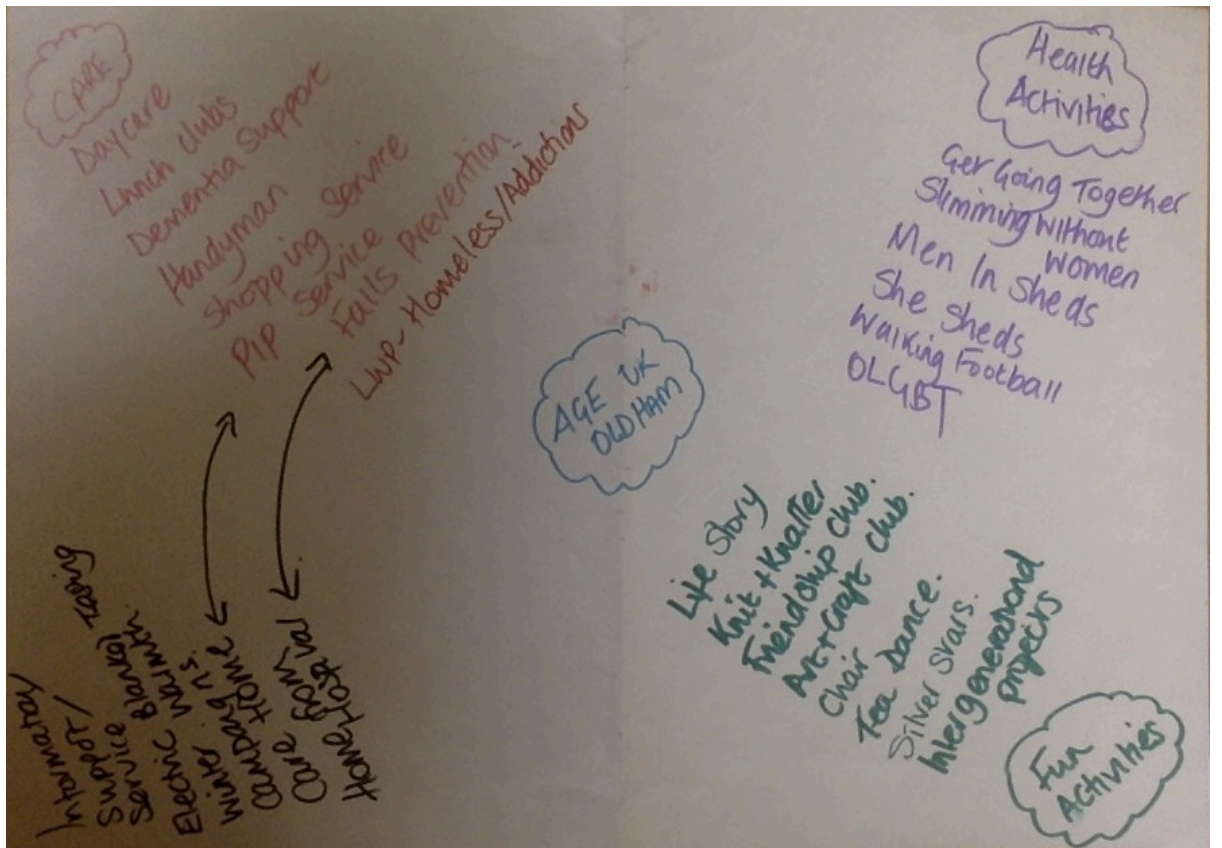 CARE
Daycare
Lunch clubs
Dementia Support
Handyman
Shopping Service
PIP Service
Falls Prevention
LWP - Homeless/Addictions
Health
Activities
Get Going Together
Slimming without
Women
Men In Sheds
She Sheds
Walking Football
OLGBT
AGE UK
OLDHAM
Information/
Support/
Service
Electric Blanket Testing
Winter Warmth
Campaigns.
Care Home
Home from
Hospital
Life Story
Knit + Knatter
Friendship Club.
Art + Craft Club.
Chair
Tea Dance.
Silver Stars.
Intergenerational
Projects
Fun
Activities